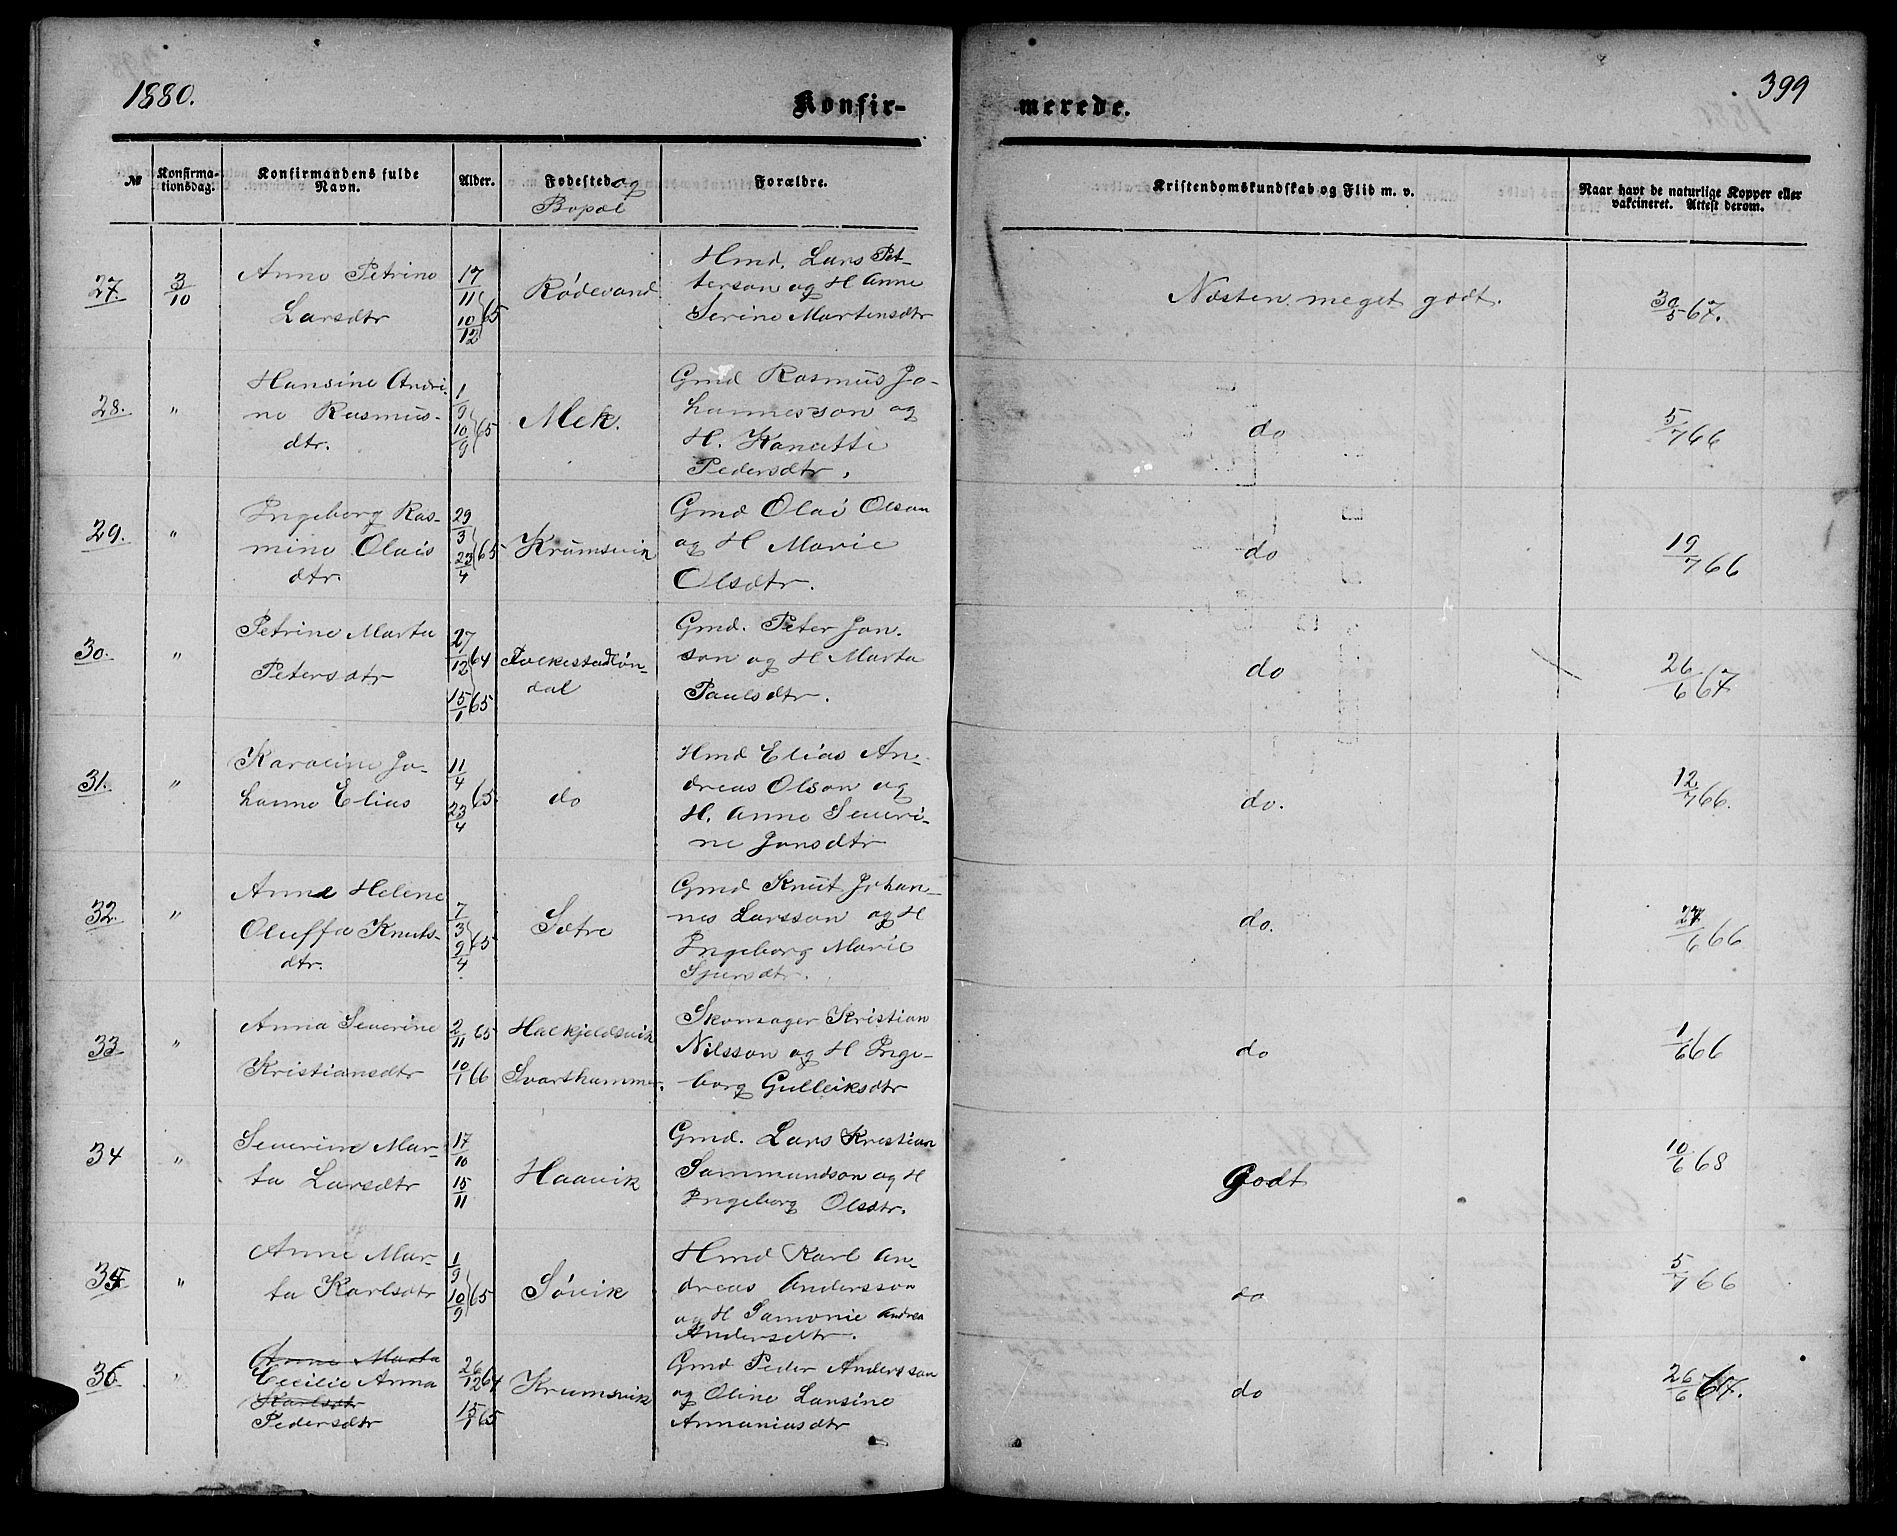 1880.
Konfir-
merede.
399
№
Konfirma-
tionsdag.
Konfirmandens fulde
Navn.
Alder.
Fødested og
Bopæl
Forældre.
Kristendomskundskab og Flid m. v.
Naar havt de naturlige Kopper eller
vakcineret. Attest derom.
27.
3/10
Anne Petrine
Larsdtr
17/11 10/12 65
Rødevand
Hmd. Lars Pet-
terson og H Anne
Serine Martensdtr
Næsten meget godt.
30/5 67.
28.
"
Hansine Andri-
ne Rasmus-
dtr.
1/9 10/9 65
Mek.
Gmd Rasmus Jo-
hannesson og
H.
Pedersdtr.
do
5/7 66
29.
"
Ingeborg Ras-
mine Olais
dtr.
29/3 23/4 65
Krumsvik
Gmd Olai Olson
og H Marie
Olsdtr.
do
19/7 66
30.
"
Petrine Marta
Petersdtr
27/12 64
15/1 65
Folkestadløn-
dal
Gmd. Peter Jon-
son og H Marta
Paulsdtr.
do
26/6 67
31.
"
Karoline Jo-
hanne Elias
11/4 23/4 65.
do
Hmd Elias An-
dreas Olson og
H. Anne Severi-
ne Jonsdtr
do.
12/7 66.
32.
"
Anne Helene
Oluffa Knuts-
dtr.
7/3 9/4 65
Sætre
Gmd Knut Johan-
nes Larsson og H
Ingeborg Marie
Sjursdtr.
do.
27/6 66
33
"
Anna Severine
Kristiansdtr
2/11 65
10/1 66
Halkjeldsvik
Svarthammer.
Skomager Kristian
Nilsson og H Inge-
borg Gulleiksdtr
do
1/6 66
34
"
Severine Mar-
ta Larsdtr
17/10
15/11
Haavik
Gmd. Lars Kristian
Sammundson og H
Ingeborg Olsdtr.
Godt
10/6 68
35
"
Anne Mar-
ta Karlsdtr
1/9 10/9 65
Søvik
Hmd Karl An-
dreas Andersson
og H Samonie Andrea
Andersdtr.
do
5/7 66
36
"
Anne Marta
Cecilie Anna
Karlsdtr
Pedersdtr
26/12 64
15/1 65
Krumsvik
Gmd Peder Andersson
og Oline Larsine
Annaniasdtr
do
26/6 67.